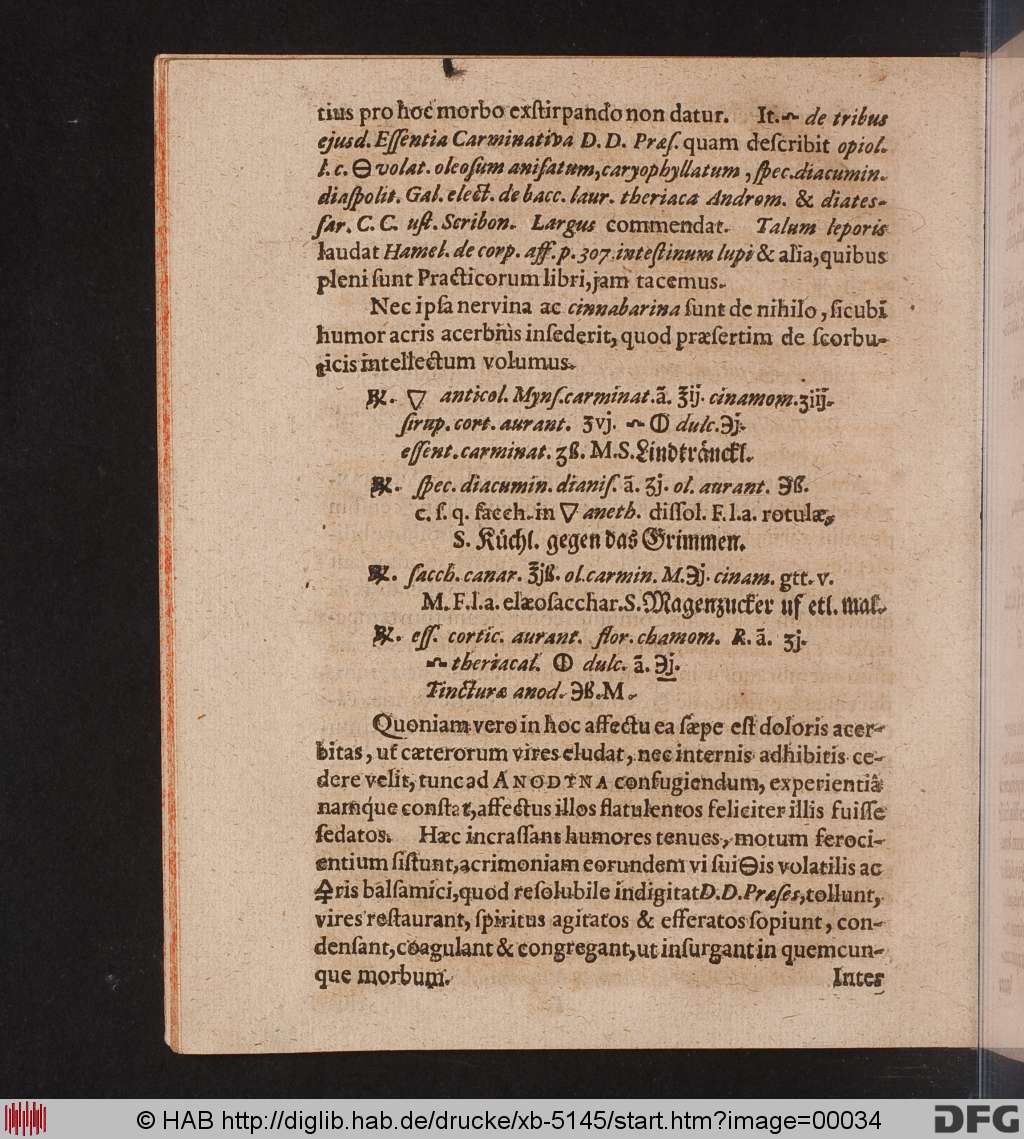 tius pro hoc morbo exſtirpando non datur. It. de tribus
ejusd. Eſſentia Carminativa D. D. Præſ. quam deſcribit opiol.
l. c. 🜔 volat. oleoſum aniſatum, caryophyllatum, ſpec. diacumin.
diaſpolit. Gal. elect. de bacc. laur. theriaca Androm. & diates-
ſar. C. C. uſt. Scribon. Largus commendat. Talum leporis
laudat Hamel. de corp. aff. p. 307. inteſtinum lupi & alia, quibus
pleni ſunt Practicorum libri, jam tacemus.
Nec ipſa nervina ac cinnabarina ſunt de nihilo, ſicubi
humor acris acerbiùs inſederit, quod præſertim de ſcorbu-
ticis intellectum volumus.
℞. 🜄 anticol. Mynſ. carminat. ā. ℥ij. cinamom. ʒiij.
ſirup. cort. aurant. ʒvj. 🜕 dulc. ℈j.
eſſent. carminat. ʒß. M. S. Lindtränckl.
℞. ſpec. diacumin. dianiſ. ā. ʒj. ol. aurant. ℈ß.
c. ſ. q. ſacch. in 🜄 aneth. diſſol. F. l. a. rotulæ,
S. Küchl. gegen das Grimmen.
℞. ſacch. canar. ℥jß. ol. carmin. M. ℈j. cinam. gtt. v.
M. F. l. a. elæoſacchar. S. Magenzucker uf etl. mal.
℞. eſſ. cortic. aurant. flor. chamom. R. ā. ʒj.
theriacal. 🜕 dulc. ā. ℈j.
Tincturæ anod. ℈ß. M.
Quoniam vero in hoc affectu ea ſæpe eſt doloris acer-
bitas, ut cæterorum vires eludat, nec internis adhibitis ce-
dere velit, tunc ad ANODYNA confugiendum, experientiâ
namque conſtat, affectus illos flatulentos feliciter illis fuiſſe
ſedatos. Hæc incraſſant humores tenues, motum feroci-
entium ſiſtunt, acrimoniam eorundem vi ſui 🜔is volatilis ac
🜍ris balſamici, quod reſolubile indigitat D. D. Præſes, tollunt,
vires reſtaurant, ſpiritus agitatos & efferatos ſopiunt, con-
denſant, coagulant & congregant, ut inſurgant in quemcun-
que morbum.
Inter
© HAB http://diglib.hab.de/drucke/xb-5145/start.htm?image=00034
DFG